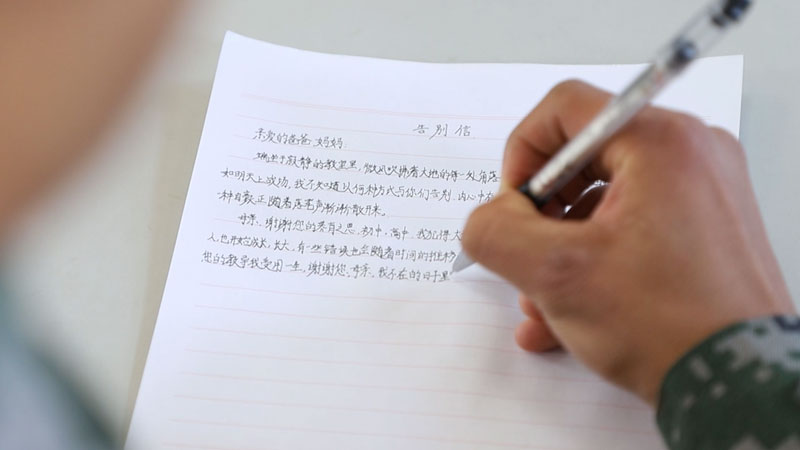 告别信
亲爱的爸爸妈妈:
端坐于寂静的教室里,微风吹拂着大地的每一处角落
如明天上战场,我不知道以何种方式与你们告别,内心中
种自豪正随着落笔声渐渐散开来。
母亲,谢谢您的养育之恩,初中、高中,我记得
人,也开始成长,长大,有一些错误也会随着时间的推移
您的教导我受用一生,谢谢您,母亲,我不在的日子里